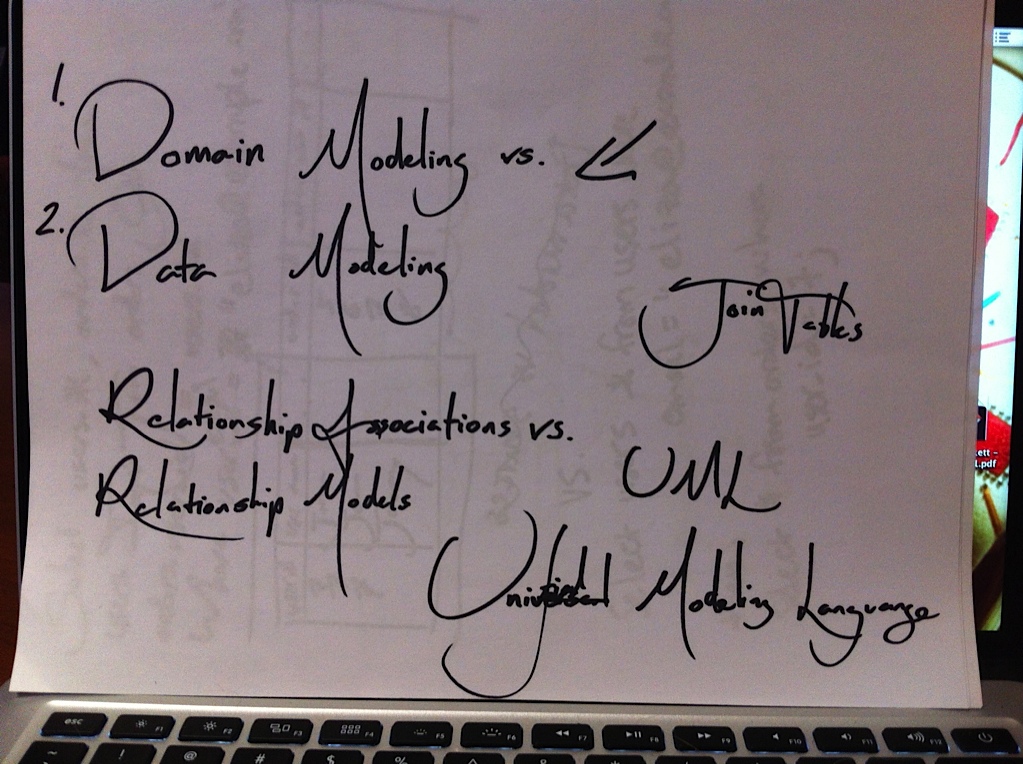 1. Domain Modeling vs.
2. Data Modeling
Join Tables
Relationship Associations vs.
Relationship Models
UML
Modeling Language
ett –
1.pdf
esc F1 F2 F3 F4 F5 F6 F7 F8 F9 F10 F11 F12
~ ! @ # $ %